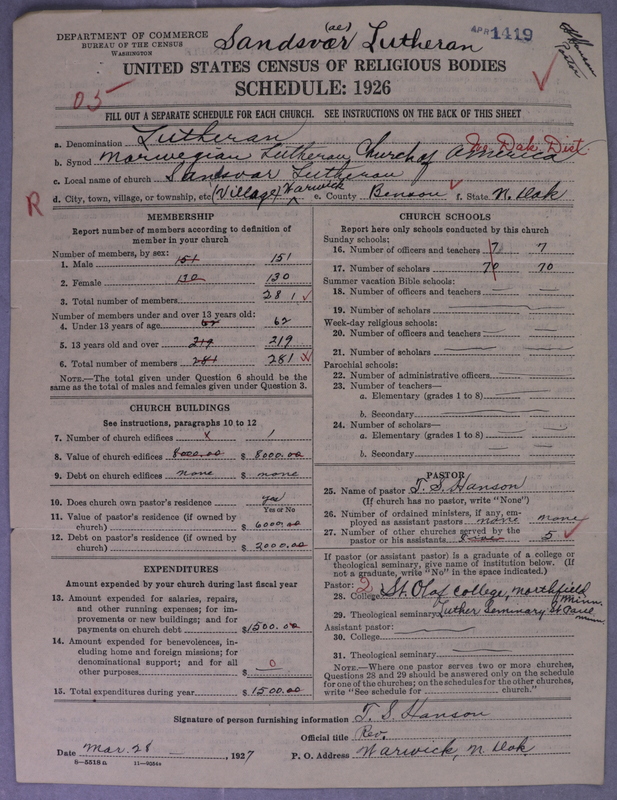 DEPARTMENT OF COMMERCE
BUREAU OF THE CENSUS
WASHINGTON
(ae)
Sandsvær Lutheran
APR 1419
T.S. Hanson
Pastor
UNITED STATES CENSUS OF RELIGIOUS BODIES
SCHEDULE: 1926
05
FILL OUT A SEPARATE SCHEDULE FOR EACH CHURCH. SEE INSTRUCTIONS ON THE BACK OF THIS SHEET
a. Denomination Lutheran
b. Synod Norwegian Lutheran Church of America No. Dak. Dist.
c. Local name of church Sandsvar Lutheran
R
d. City, town, village, or township, etc. (Village) Warwick e. County Benson f. State N. Dak
MEMBERSHIP
Report number of members according to definition of
member in your church
Number of members, by sex:
1. Male 151 151
2. Female 130 130
3. Total number of members 281
Number of members under and over 13 years old:
4. Under 13 years of age 62 62
5. 13 years old and over 219 219
6. Total number of members 281 281
NOTE.—The total given under Question 6 should be the
same as the total of males and females given under Question 3.
CHURCH BUILDINGS
See instructions, paragraphs 10 to 12
7. Number of church edifices x 1
8. Value of church edifices 8000.00 $ 8000.00
9. Debt on church edifices none $ none
10. Does church own pastor's residence yes
Yes or No
11. Value of pastor's residence (if owned by
church) $ 6000.00
12. Debt on pastor's residence (if owned by
church) $ 2000.00
EXPENDITURES
Amount expended by your church during last fiscal year
13. Amount expended for salaries, repairs,
and other running expenses; for im-
provements or new buildings; and for
payments on church debt $1500.00
14. Amount expended for benevolences, in-
cluding home and foreign missions; for
denominational support; and for all
other purposes $ 0
15. Total expenditures during year $1500.00
CHURCH SCHOOLS
Report here only schools conducted by this church
Sunday schools:
16. Number of officers and teachers 7 7
17. Number of scholars 70 70
Summer vacation Bible schools:
18. Number of officers and teachers
19. Number of scholars
Week-day religious schools:
20. Number of officers and teachers
21. Number of scholars
Parochial schools:
22. Number of administrative officers
23. Number of teachers—
a. Elementary (grades 1 to 8)
b. Secondary
24. Number of scholars—
a. Elementary (grades 1 to 8)
b. Secondary
PASTOR
25. Name of pastor T. S. Hanson
(If church has no pastor, write "None")
26. Number of ordained ministers, if any, em-
ployed as assistant pastors none none
27. Number of other churches served by the
pastor or his assistants 5
If pastor (or assistant pastor) is a graduate of a college or
theological seminary, give name of institution below. (If
not a graduate, write "No" in the space indicated.)
Pastor: 2
28. College St. Olaf College, Northfield Minn.
29. Theological seminary Luther Seminary St Paul Minn.
Assistant pastor:
30. College
31. Theological seminary
NOTE.—Where one pastor serves two or more churches,
Questions 28 and 29 should be answered only on the schedule
for one of the churches; on the schedules for the other churches,
write "See schedule for church."
Signature of person furnishing information T. S. Hanson
Official title Rev.
Date Mar. 28, 1927 P. O. Address Warwick, N. Dak.
8—5518a 11—9254a